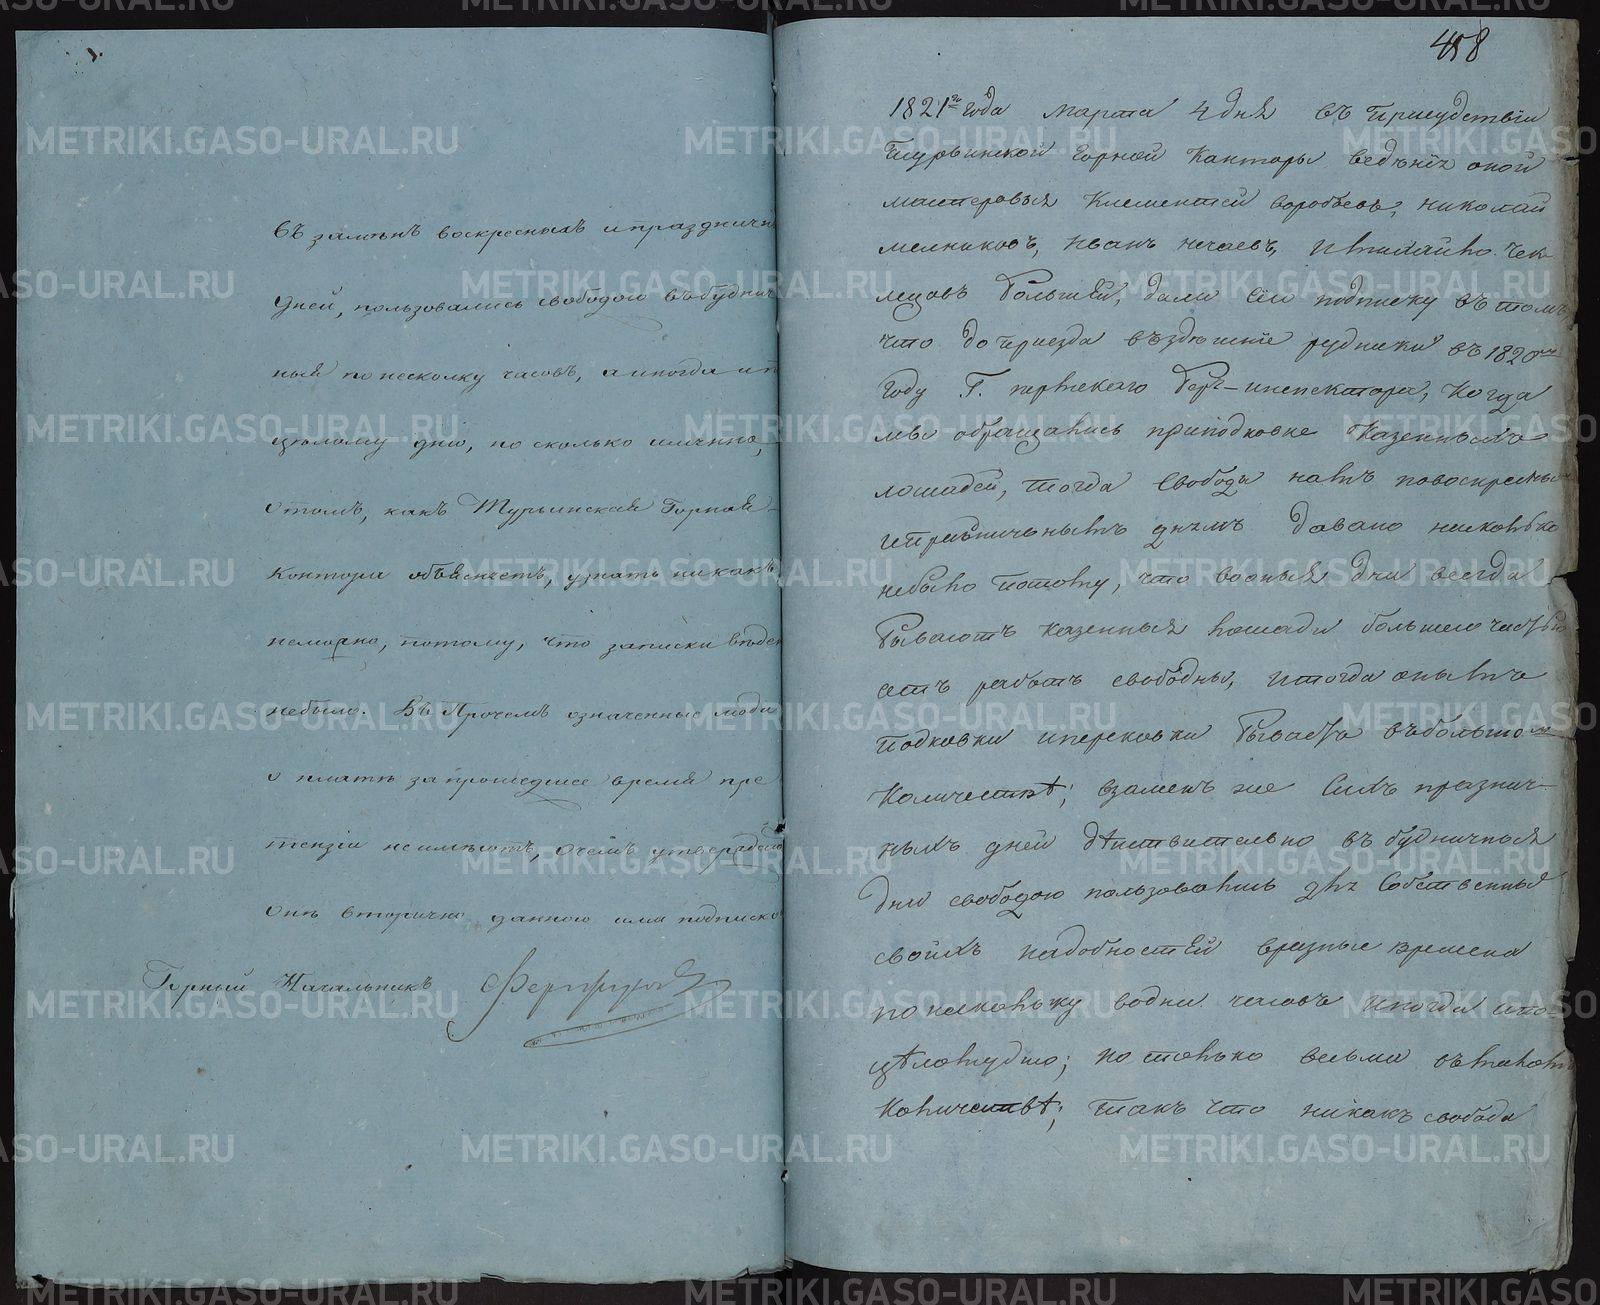 въ замѣнъ воскресныхъ и праздничн
дней, пользовались свободою въ буднич
ныя по нескольку часовъ, а иногда и п
цѣлому дню, но сколько именно,
о томъ, какъ Турьинская Горная
Контора объясняетъ, узнать никакъ
неможно, потому, что записки вѣден
небыло. Въ Прочемъ означенные люди
о платѣ за прошедшее время пре
тензіи неимѣютъ, очемъ утвердили
онѣ вторично данною ими подпискою
Горный Начальникъ
458
1821го года марта 4 дня въ присудствіи
Турьинской горной Канторы ведѣнія оной
мастеровыя Клементей воробьевъ, николай
мелниковъ, иванъ нечаевъ, Михайло Чек
мецовъ большей, дали сію подписку въ томъ,
что до приезда въ здѣшніе рудники въ 1820м
году Г. пермскаго Берг-инспектора, когда
мы обращались приподковке Казенныхъ
лошадей, тогда свобода намъ повоскресны
ипразничнымъ днямъ давано нисколько
небыло потому, что воныя дни всегда
бываютъ казенныя лошади большею частью
отъ работъ свободны, итогда онымъ
подковки иперековки бываетъ въбольшом
Количествѣ; взаменъ же сихъ празнич-
ныхъ дней дѣйствительно въ будничныя
дни свободою пользовались для собственныя
своихъ надобностей вразные времена
понескольку водни часовъ иногда ипо-
цѣломудню; но только весьма въмалом
Количествѣ; такъ что никакъ свобода